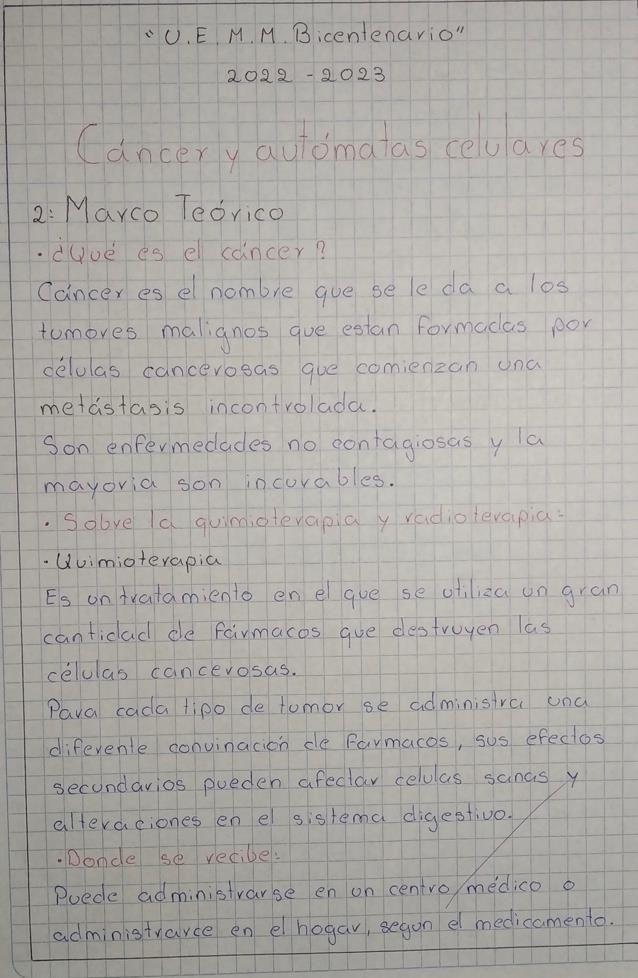 "U.E. M.M. Bicentenario"
2022 - 2023
Cáncer y autómatas celulares
2: Marco Teórico
· ¿Qué es el cáncer?
Cáncer es el nombre que se le da a los
tumores malignos que estan formadas por
células cancerosas que comienzan una
metástasis incontrolada.
Son enfermedades no contagiosas y la
mayoria son incurables.
· Sobre la quimioterapia y radioterapia:
· Quimioterapia
Es un tratamiento en el que se utiliza un gran
cantidad de fármacos que destruyen las
células cancerosas.
Para cada tipo de tumor se administra una
diferente convinación de farmacos, sus efectos
secundarios pueden afectar celulas sanas y
alteraciones en el sistema digestivo.
· Donde se recibe:
Puede administrarse en un centro médico o
administrarce en el hogar, segun el medicamento.